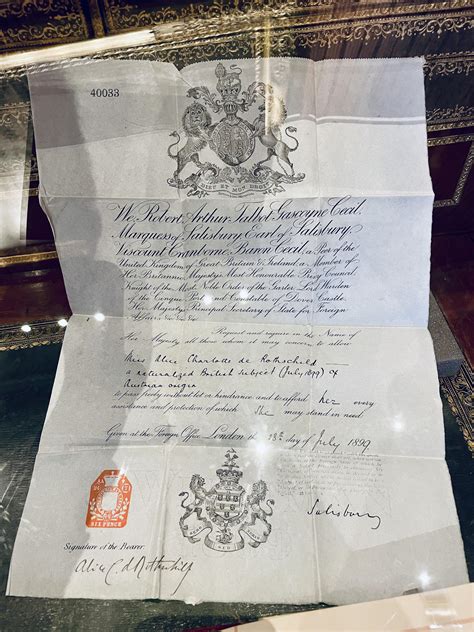 40033
DIEU ET MON DROIT
We, Robert Arthur Talbot Gascoyne Cecil,
Marquess of Salisbury, Earl of Salisbury,
Viscount Cranborne, Baron Cecil, a Peer of the
United Kingdom of Great Britain & Ireland, a Member of
Her Britannic Majesty's Most Honourable Privy Council,
Knight of the Most Noble Order of the Garter, Lord Warden
of the Cinque Ports and Constable of Dover Castle,
Her Majesty's Principal Secretary of State for Foreign
Affairs, &c. &c. &c.
Request and require in the Name of
Her Majesty, all those whom it may concern, to allow
Miss Alice Charlotte de Rothschild
a naturalized British Subject (July 1899) of
Austrian origin
to pass freely without let or hindrance and to afford her every
assistance and protection of which She may stand in need.
Given at the Foreign Office, London, the 18th day of July 1899
SIX PENCE
Salisbury
SERO SED
Signature of the Bearer
Alice C. d Rothschild